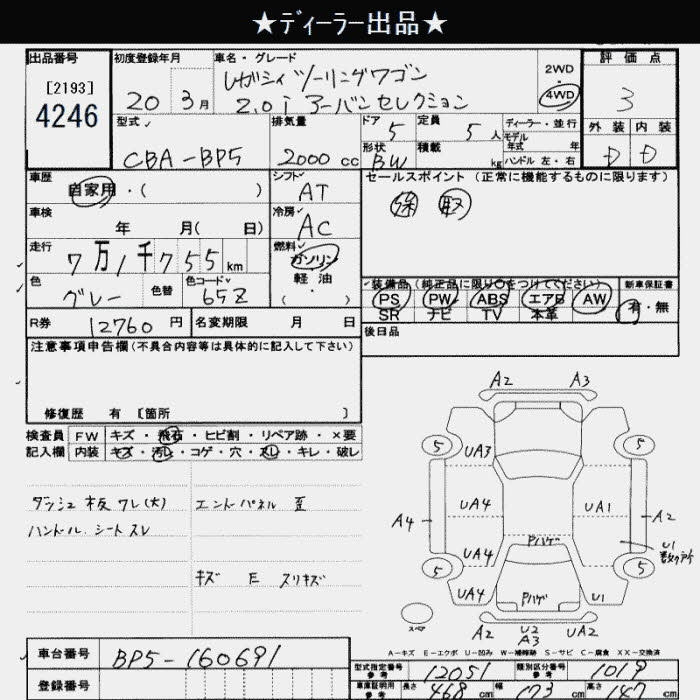 ★ディーラー出品★
出品番号
[2193]
4246
初度登録年月
20年 3月
車名・グレード
レガシィ ツーリングワゴン
2.0i アーバンセレクション
2WD
4WD
評価点
3
外装 内装
D D
型式
CBA-BP5
排気量
2000 cc
ドア 5
形状 BW
定員 5人
積載 kg
ディーラー・並行
モデル年式 年
ハンドル 左・右
車歴
自家用・( )
シフト
AT
セールスポイント (正常に機能するものに限ります)
保 取
車検
年 月( 日)
冷房
AC
走行
7万1千755km
燃料
ガソリン
軽油
( ・ )
色
グレー
色替
色コード
65Z
装備品(純正品に限り○をつけてください)
PS PW ABS エアB AW
SR ナビ TV 本革
新車保証書
有・無
R券 12760 円
名変期限 月 日
後日品
注意事項申告欄(不具合内容等は具体的に記入して下さい)
修復歴 有 〔箇所 〕
検査員記入欄
FW キズ・飛石・ヒビ割・リペア跡・×要
内装 キズ・汚レ・コゲ・穴・スレ・キレ・破レ
ダッシュ板 ワレ(大)
ハンドル シート スレ
キズ E スリキズ
A2 A3
5 5
UA3
A4 UA4 UA1 A2
Pハゲ
U1
UA4
5 5
UA4 Pハゲ U1
スペア
A2 U2 UA2
A3
A-キズ E-エクボ U-凹み W-補修跡 S-サビ C-腐食 XX-交換済
車台番号
BP5-160691
登録番号
型式指定番号参考
12051
類別区分番号参考
1019
車庫証明用参考
長さ 468 cm 幅 173 cm 高さ 147 cm